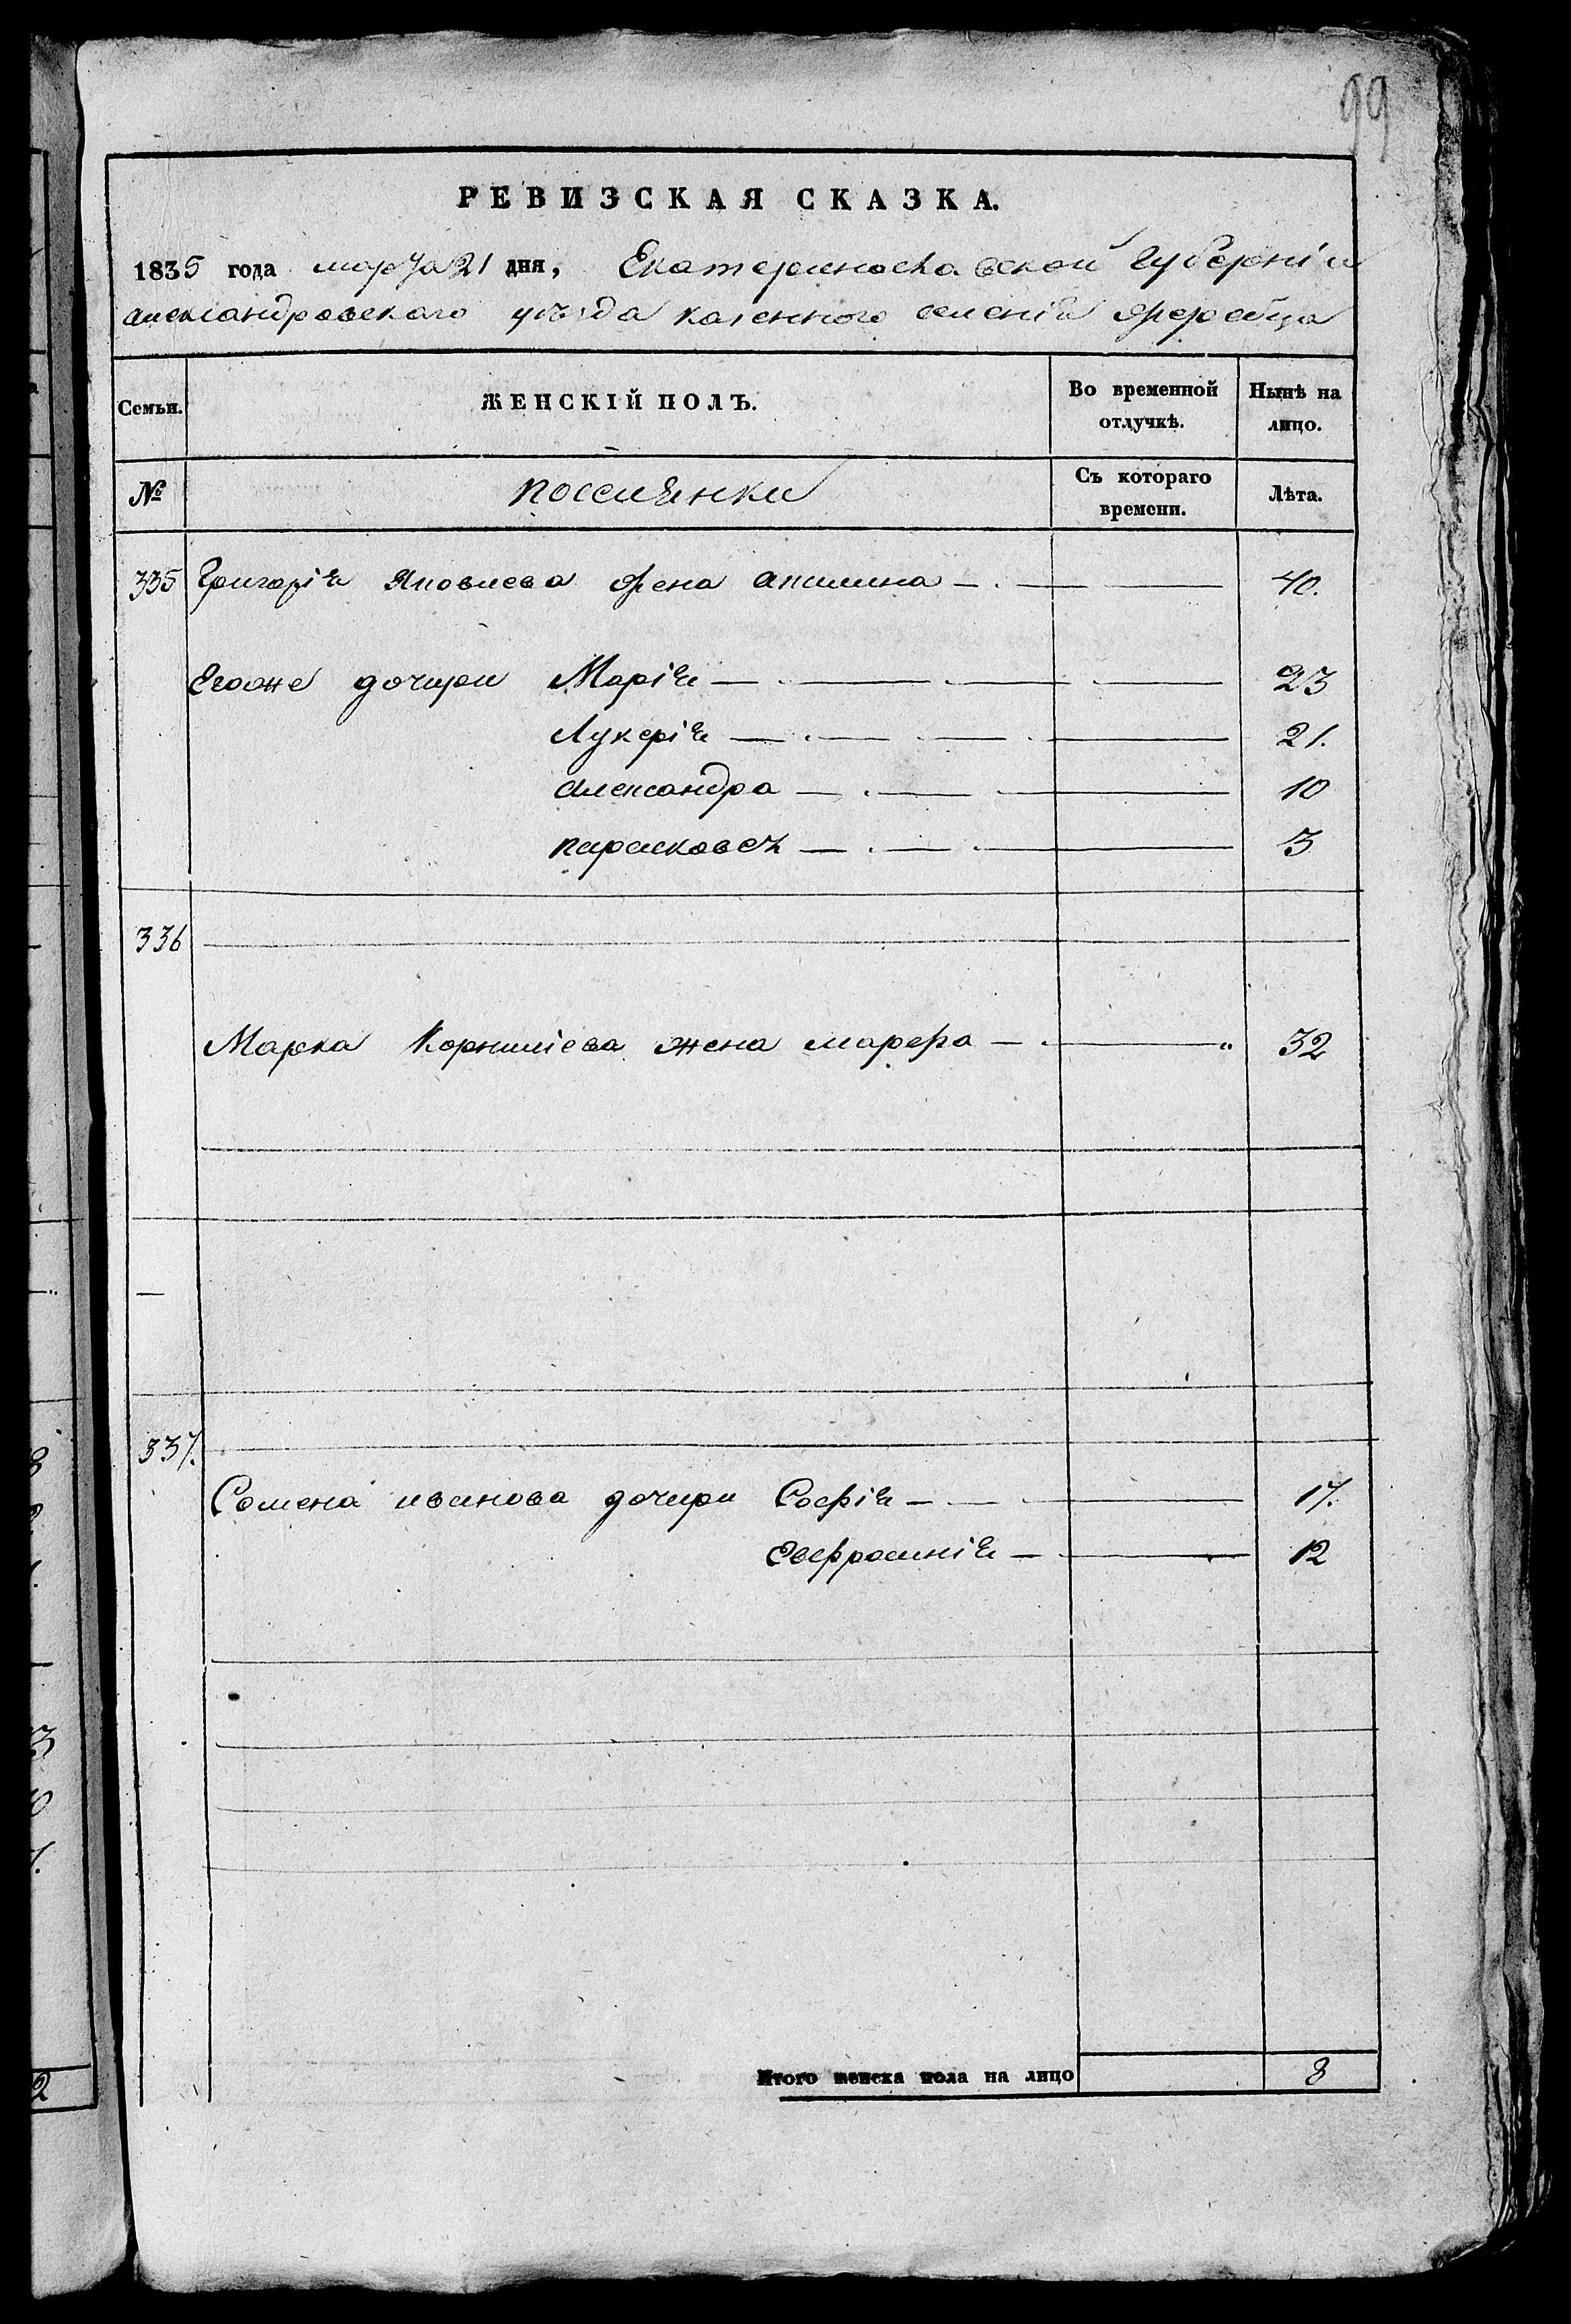 99
РЕВИЗСКАЯ СКАЗКА.
1835 года марта 21 дня, Екатеринославской губерніи
александровскаго уѣзда казенного селенія жеребца
Семьи. ЖЕНСКІЙ ПОЛЪ. Во временной отлучкѣ. Нынѣ на лицо.
№ поселянки Съ котораго времени. Лѣта.
335 Григорія Яковлева жена акилина — 40.
Егоже дочери Марія — 23
Лукерія — 21.
александра — 10
парасковея — 3
336
Марка Корнилиева жена марфа — " 32
—
337.
Семена иванова дочери Софія — 17.
Евфросинія — 12
Итого женска пола на лицо 8